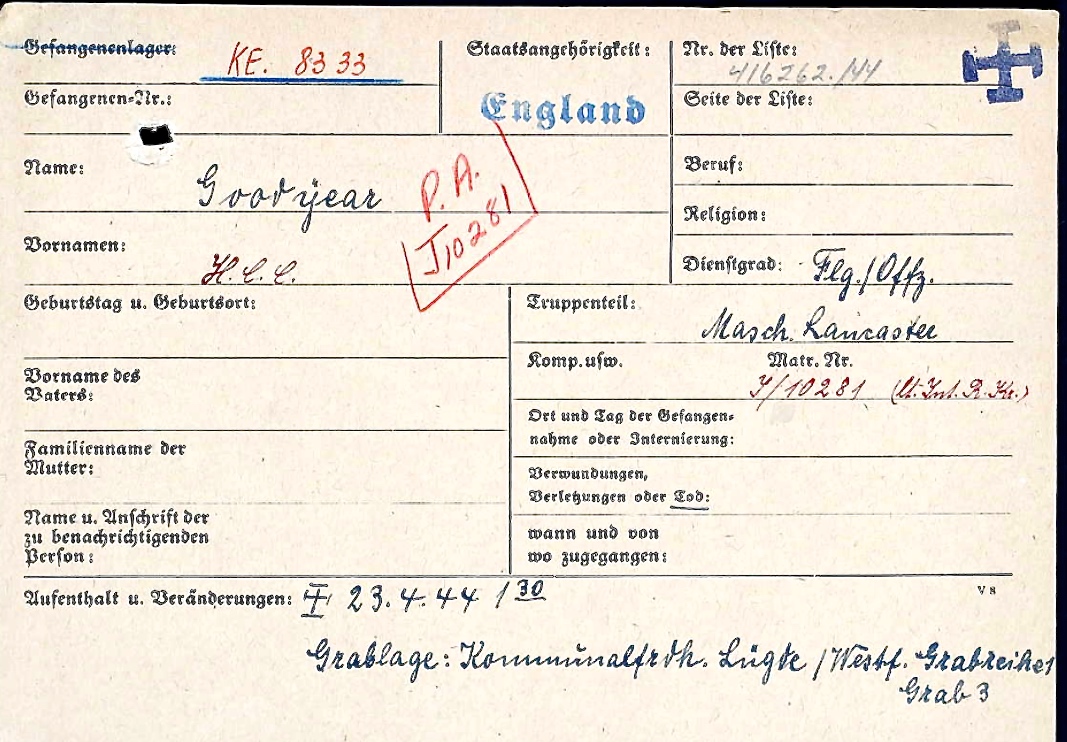 Gefangenenlager: KE. 8333
Staatsangehörigkeit:
England
Nr. der Liste:
416262./44
Gefangenen-Nr.:
Seite der Liste:
Name: Goodyear
P. A.
J,10281
Beruf:
Religion:
Vornamen: H. C. C.
Dienstgrad: Flg./Offz.
Geburtstag u. Geburtsort:
Truppenteil:
Masch. Lancaster
Komp. usw. Matr. Nr.
J/10281 (lt. Int. R. Kr.)
Vorname des
Vaters:
Ort und Tag der Gefangen-
nahme oder Internierung:
Familienname der
Mutter:
Verwundungen,
Verletzungen oder Tod:
Name u. Anschrift der
zu benachrichtigenden
Person:
wann und von
wo zugegangen:
Aufenthalt u. Veränderungen: 23.4.44 / 30
VS
Grablage: Kommunalfrdh. Lügde /Westf. Grabreihe 1
Grab 3